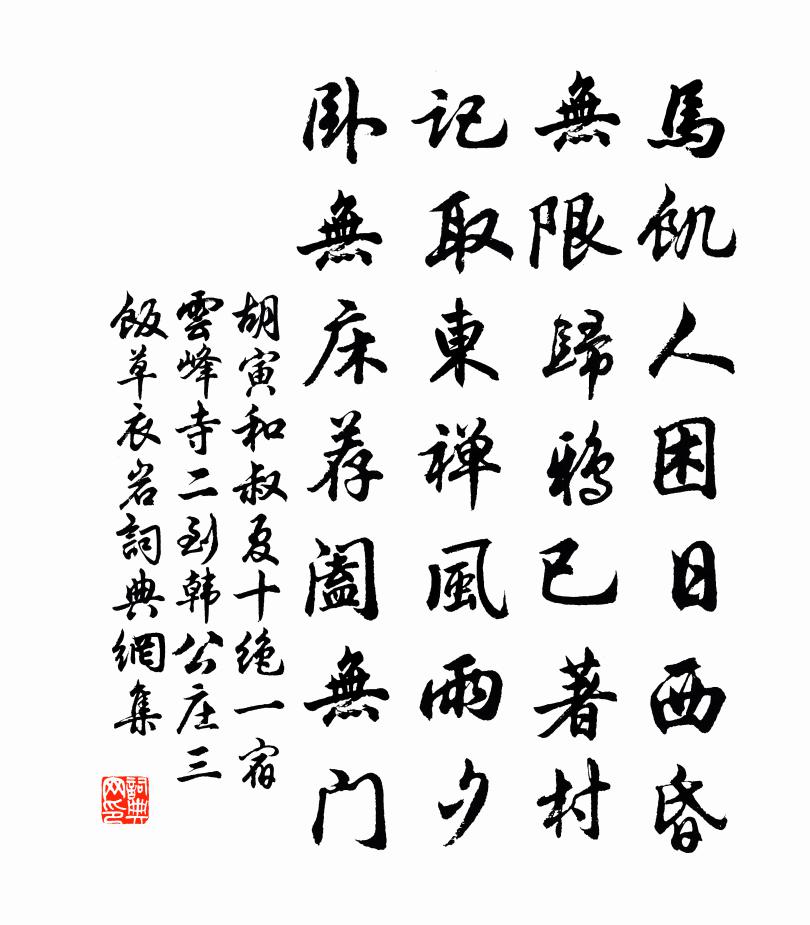 馬飢人困日西昏
無限歸鴉已著村
記取東禅風雨夕
卧無床荐阖無门
胡寅和叔夏十絶一宿
雲峰寺二到韩公庄三
飯草衣岩詞典網集
詞典
网印